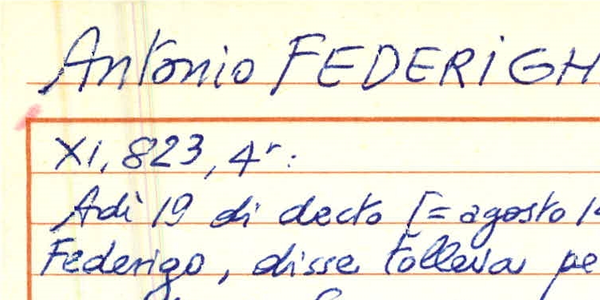 Antonio FEDERIGH
XI, 823, 4r:
Adì 19 di decto [= agosto 14
Federigo, disse tolleva pe